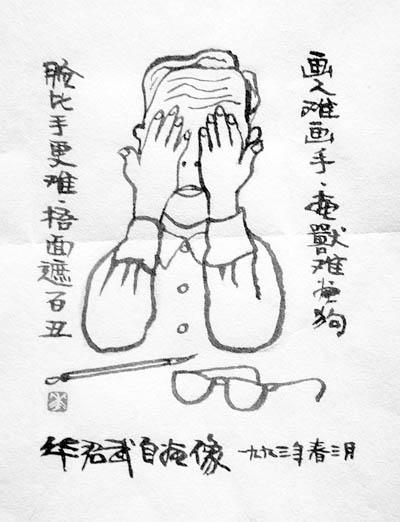 画人难画手·畫獸难畫狗
脸比手更难·捂面遮百丑
华君武自畫像 一九九三年春三月